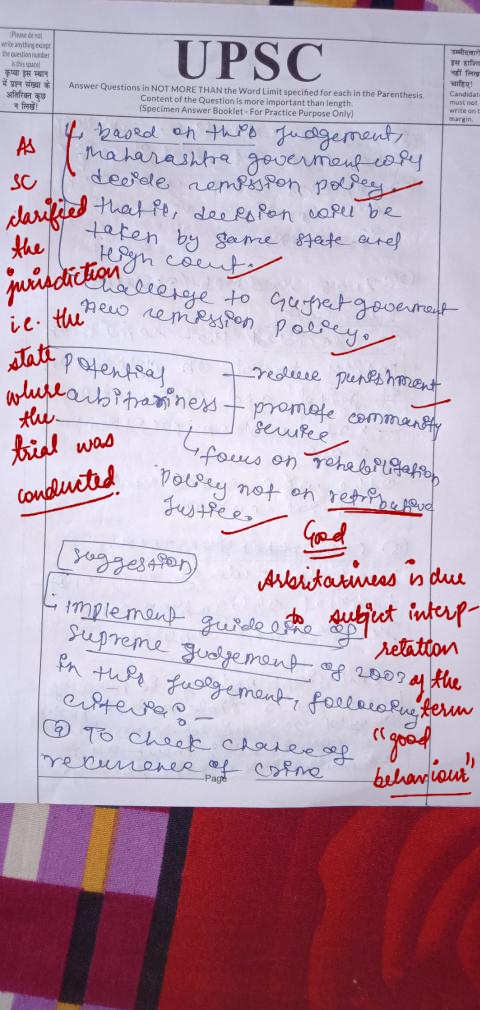 (Please do not
write anything except
the question number
in this space)
कृपया इस स्थान
में प्रश्न संख्या के
अतिरिक्त कुछ
न लिखें।
UPSC
Answer Questions in NOT MORE THAN the Word Limit specified for each in the Parenthesis.
Content of the Question is more important than length.
(Specimen Answer Booklet - For Practice Purpose Only)
उम्मीदवारों
इस हाशिए
नहीं लिखना
चाहिए।
Candidate
must not
write on t
margin.
based on this Judgement,
Maharashtra goverment
decide remission policy.
that is, decision will be
taken by same state and
High court.
Challenge to Gujrat goverment
new remission policy.
Potential
arbitrariness
reduce punishment
promote community
service
focus on rehabilitation
Policy not on retributive
Justice.
As
SC
clarified
the
jurisdiction
i.e. the
state
where
the
trial was
conducted.
Good
Suggestion
Arbitrariness is due
to subject interp-
retation
of the
term
"good
behaviour"
implement guideline of
Supreme Judgement of 2007
in this Judgement, following
criteria:-
(a) To check chance of
recurrence of crime
Page